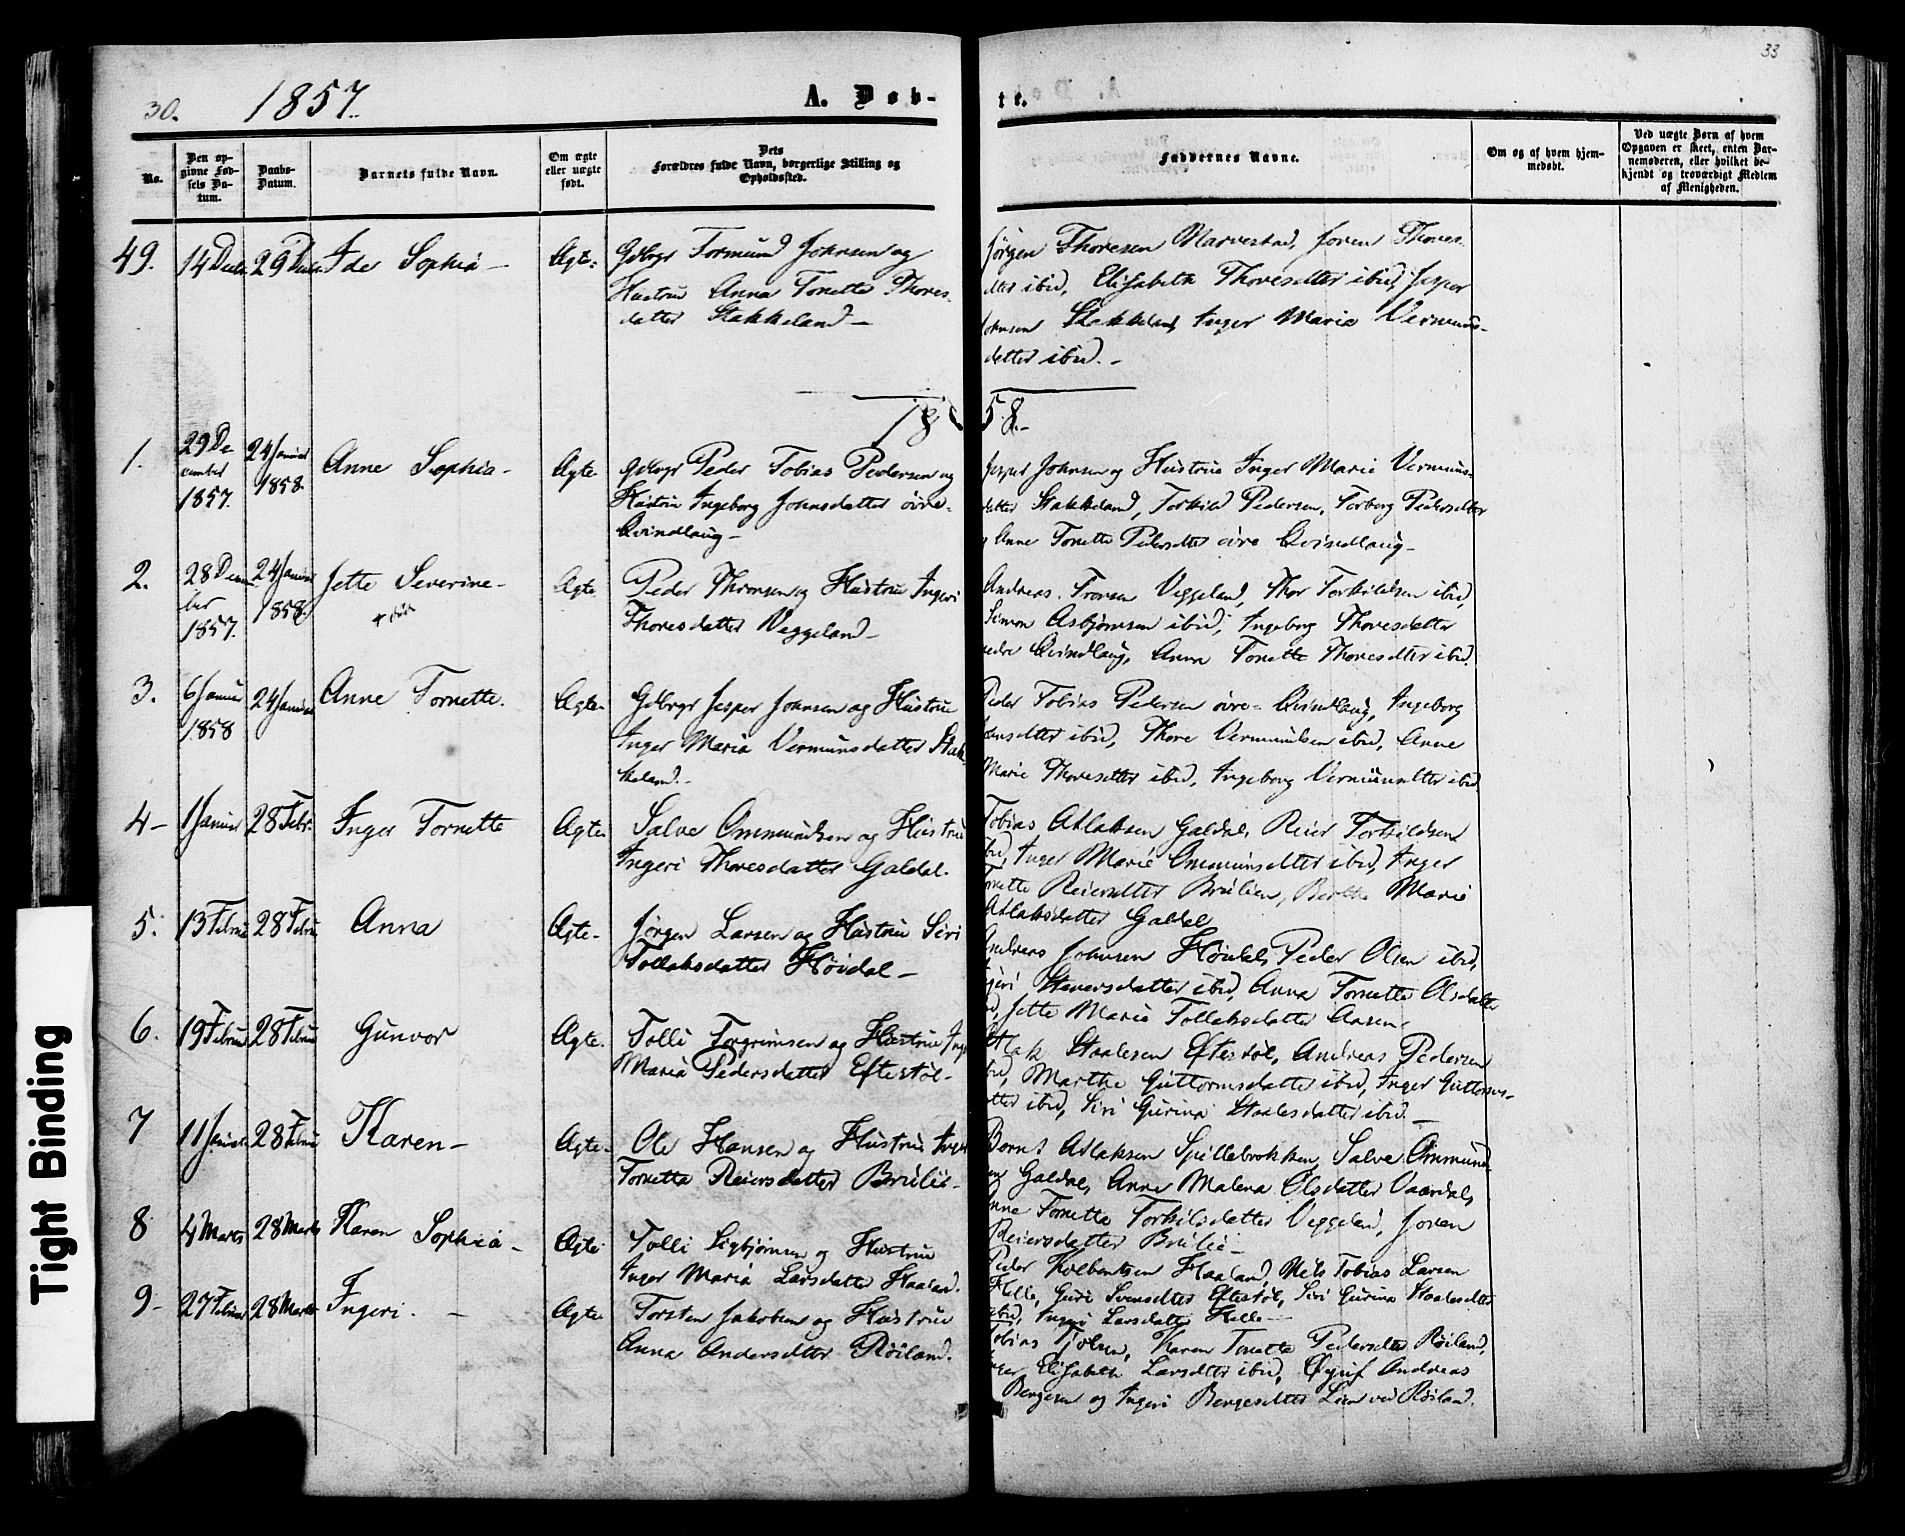 33
30. 1857. A. Døb-
te.
No.
Den op-
givne Fød-
sels Da-
tum.
Daabs-
Datum.
Barnets fulde Navn.
Om ægte
eller uægte
født.
Dets
Forældres fulde Navn, borgerlige Stilling og
Opholdssted.
Faddernes Navne.
Om og af hvem hjem-
medøbt.
Ved uægte Børn af hvem
Opgaven er skeet, enten Bar-
nemoderen, eller hvilket be-
kjendt og troværdigt Medlem
af Menigheden.
49. 14 Decbr 29 Decbr Ide Sophia – Ægte. Gdbrgr Tormund Johnsen og
Hustrue Anna Tonette Thores-
datter Stakkeland –
Jørgen Thoresen Marvestad, Joren Thores-
dtter ibid, Elisabeth Thoresdtter ibid, Jesper
Johnsen Stakkeland, Inger Maria Vermunds-
datter ibid. –
1858. –
1. 29 De-
cember
1857.
24 Januar
1858.
Anne Sophia – Ægte Gdbrgr Peder Tobias Pedersen og
Hustrue Ingeborg Johnsdatter øvre-
Qvindlaug –
Jesper Johnsen og Hustrue Inger Marie Vermuns-
datter Stakkeland, Torkild Pedersen, Torborg Pedersdtter
og Anne Tonette Pedersdtter øvre Qvindlaug –
2. 28 Decem-
ber
1857.
24 Januar
1858.
Jette Severine –
+ død
Ægte Peder Thronsen og Hustrue Ingeri
Thoresdatter Veggeland –
Andreas Tronsen Veggeland, Thor Torkildsen ibid,
Simon Asbjørnsen ibid, Ingeborg Thoresdatter
nedre Qvindlaug, Anna Tonette Thoresdtter ibid.
3. 6 Januar
1858
24 Januar
Anne Tornette. Ægte. Gdbrgr Jesper Johnsen og Hustrue
Inger Maria Vermunsdatter Stak-
keland. –
Peder Tobias Pedersen øvre- Qvindlaug, Ingeborg
Jonsdtter ibid, Thore Vermundsen ibid, Anne
Marie Thoresdtter ibid, Ingeborg Vermunsdtter ibid
4 – 1 Januar 28 Febr. Inger Tornette Ægte. Salve Ommundsen og Hustrue
Ingeri Thoresdatter Galdal.
Tobias Atlaksen Galdal, Reier Torkildsen
ibid, Inger Marie Ommunsdtter ibid, Inger
Tonette Reiersdtter Brulien, Berthe Marie
Atlaksdatter Galdal
5. 13 Februar 28 Februar Anna Ægte – Jørgen Larsen og Hustrue Siri
Tollaksdatter Høidal –
Andreas Johnsen Høidal, Peder Olsen ibid,
Siri Sieversdatter ibid, Anna Tornette Olsdatter
ibid, Jette Marie Tollaksdatter Aasen.
6. 19 Februar 28 Februar Gunvor Ægte. Tolli Torgrimsen og Hustrue Inger
Maria Pedersdatter Eftestøl –
Atlak Staalesen Eftestøl, Andreas Pedersen
ibid, Marthe Guttormsdatter ibid, Inger Guttorms-
datter ibid, Siri Gurina Staalesdatter ibid. –
7 11 Januar 28 Februar Karen – Ægte – Ole Hansen og Hustrue Inger
Tornette Reiersdatter Brulie –
Bernt Atlaksen Spillebrokken, Salve Ommund-
sen Galdal, Anne Malena Olsdatter Vaardal,
Anne Tornetta Torkilsdatter Veggeland, Joren
Reiersdatter Brulie –
8 4 Marts 28 Marts Karen Sophia – Ægte Tolli Sigbjørnsen og Hustrue
Inger Maria Larsdatter Haaland.
Peder Kolbentsen Haaland, Nels Tobias Larsen
Helle, Guri Svensdtter Eftestøl, Siri Gurina Staalesdtter
ibid, Ingeri Larsdatter Helle –
9 – 27 Februar 28 Marts Ingeri. – Ægte. Torsten Jakobsen og Hustrue
Anna Andersdtter Røiland.
Tobias Tjølsen, Karen Tonette Pedersdtter Røiland,
Inger Elisabeth Larsdtter ibid, Andreas
Bergesen og Ingeri Bergesdtter Lien ved Røiland.
Tight Binding